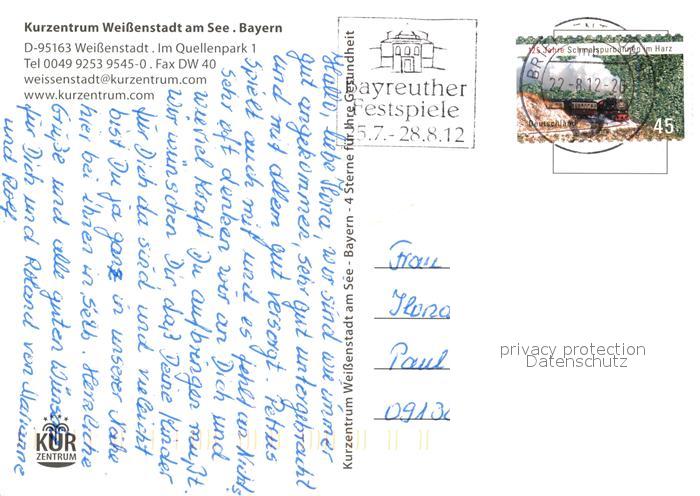 Kurzentrum Weißenstadt am See . Bayern
D-95163 Weißenstadt . Im Quellenpark 1
Tel 0049 9253 9545-0 . Fax DW 40
weissenstadt@kurzentrum.com
www.kurzentrum.com
Hallo liebe Ilona, wir sind wie immer
gut angekommen, sehr gut untergebracht
und mit allem gut versorgt. Petrus
spielt auch mit und es fehlt an Nichts
Sehr oft denken wir an Dich und
wieviel Kraft Du aufbringen mußt.
Wir wünschen Dir daß Deine Kinder
für Dich da sind und vielleicht
bist Du ja ganz in unserer Nähe
hier bei ihnen in Selb. Herzliche
Grüße und alle guten Wünsche
für Dich und Roland von Marianne
und Rolf
KUR
ZENTRUM
Kurzentrum Weißenstadt am See - Bayern - 4 Sterne für Ihre Gesundheit
Bayreuther
Festspiele
25.7.-28.8.12
BR
22.-8.12-20
125 Jahre Schmalspurbahnen im Harz
Deutschland
45
Frau
Ilona
Paul
0913
privacy protection
Datenschutz